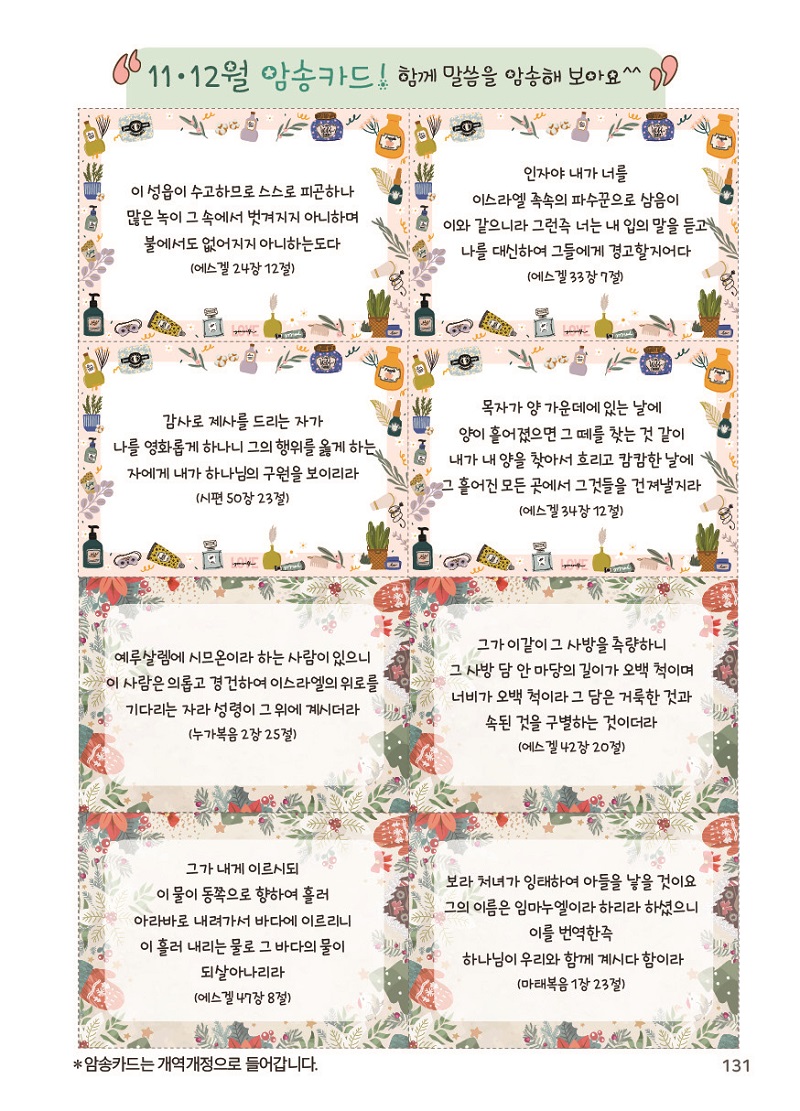 11·12월 암송카드! 함께 말씀을 암송해 보아요^^
이 성읍이 수고하므로 스스로 피곤하나
많은 녹이 그 속에서 벗겨지지 아니하며
불에서도 없어지지 아니하는도다
(에스겔 24장 12절)
인자야 내가 너를
이스라엘 족속의 파수꾼으로 삼음이
이와 같으니라 그런즉 너는 내 입의 말을 듣고
나를 대신하여 그들에게 경고할지어다
(에스겔 33장 7절)
감사로 제사를 드리는 자가
나를 영화롭게 하나니 그의 행위를 옳게 하는
자에게 내가 하나님의 구원을 보이리라
(시편 50장 23절)
목자가 양 가운데에 있는 날에
양이 흩어졌으면 그 떼를 찾는 것 같이
내가 내 양을 찾아서 흐리고 캄캄한 날에
그 흩어진 모든 곳에서 그것들을 건져낼지라
(에스겔 34장 12절)
예루살렘에 시므온이라 하는 사람이 있으니
이 사람은 의롭고 경건하여 이스라엘의 위로를
기다리는 자라 성령이 그 위에 계시더라
(누가복음 2장 25절)
그가 이같이 그 사방을 측량하니
그 사방 담 안 마당의 길이가 오백 척이며
너비가 오백 척이라 그 담은 거룩한 것과
속된 것을 구별하는 것이더라
(에스겔 42장 20절)
그가 내게 이르시되
이 물이 동쪽으로 향하여 흘러
아라바로 내려가서 바다에 이르리니
이 흘러 내리는 물로 그 바다의 물이
되살아나리라
(에스겔 47장 8절)
보라 처녀가 잉태하여 아들을 낳을 것이요
그의 이름은 임마누엘이라 하리라 하셨으니
이를 번역한즉
하나님이 우리와 함께 계시다 함이라
(마태복음 1장 23절)
*암송카드는 개역개정으로 들어갑니다.
131